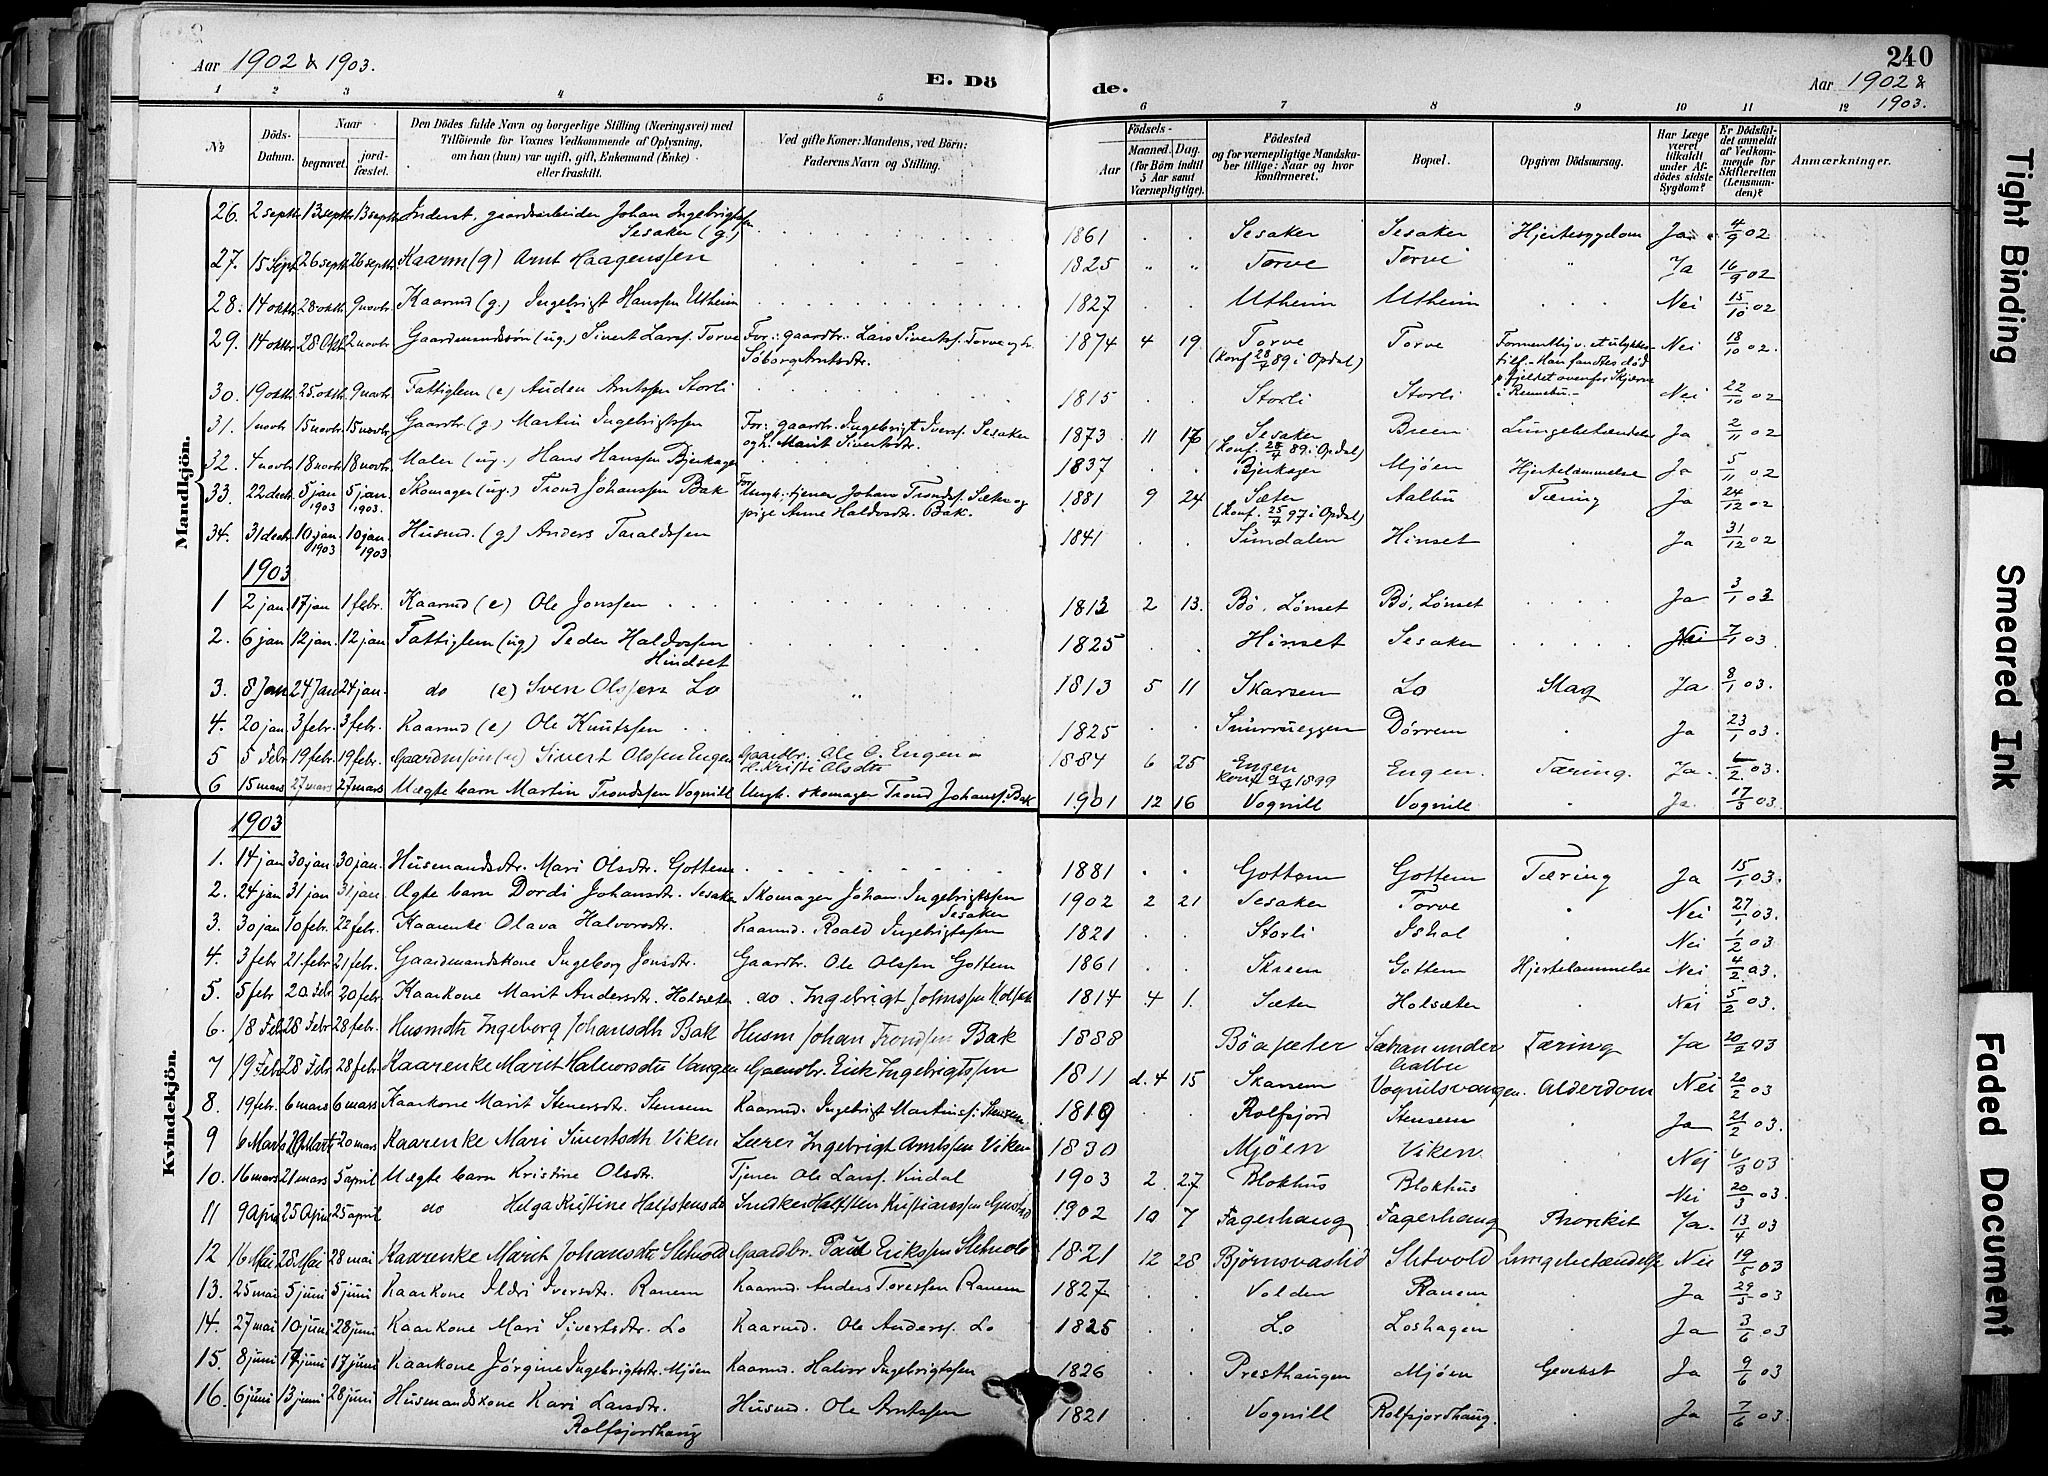 Aar 1902 & 1903.
E. Döde.
240
Aar 1902 & 1903.
1 2 3 4 5 6 7 8 9 10 11 12
No
Döds-Datum.
Naar
begravet.
jordfæstet.
Den Dödes fulde Navn og borgerlige Stilling (Næringsvei) med
Tilföiende for Voxnes Vedkommende af Oplysning,
om han (hun) var ugift, gift, Enkemand (Enke)
eller fraskilt.
Ved gifte Koner: Mandens, ved Börn:
Faderens Navn og Stilling.
Födsels-
Aar
Maaned. Dag.
(for Börn indtil
5 Aar samt
Værnepligtige).
Födested
og for værnepligtige Mandska-
ber tillige: Naar og hvor
konfirmeret.
Bopæl.
Opgiven Dödsaarsag.
Har Læge
været
tilkaldt
under Af-
dödes sidste
Sygdom?
Er Dödsfal-
det anmeldt
af Vedkom-
mende for
Skifteretten
(Lensman-
den)?
Anmærkninger.
Mandkjön.
26. 2 septr. 13 septr. 13 septr. Inderst, gaardsarbeider Johan Ingebrigtssen Sesaker (g.) 1861 Sesaker Sesaker Hjertesygdom Ja 4/9 02
27. 15 Sept. 26 septr. 26 septr. Kaarm (g) Arnt Haagenssen 1825 " " Torve Torve " Ja 16/9 02
28. 14 oktbr. 28 oktbr. 9 novbr. Kaarmd (g.) Ingebrigt Hanssen Utheim 1827 Utheim Utheim Nei 15/10 02
29. 14 oktbr. 28 Okt. 2 novbr. Gaardmandssön (ug.) Sivert Larss. Torve For: gaardbr. Lars Sivertss. Torve og h. Söborg Arntsdtr. 1874 4 19 Torve (Konf. 28/7 89 i Opdal) Torve Formentlig v. et ulykkes-tilf. Han fandtes död p. fjeldet ovenfor Skjærve i Rennebu. Nei 18/10 02.
30. 19 oktbr. 25 oktbr. 9 novbr. Fattiglem (e) Auden Arntssen Storli 1815 Storli Storli Nei 22/10 02
31. 1 novbr. 15 novbr. 15 novbr. Gaardbr. (g.) Martin Ingebrigtssen For: gaardbr. Ingebrigt Iverss. Sesaker og h. Marit Sivertsdtr. 1873 11 16 Sesaker (Konf. 28/7 89 i Opdal) Breen Lungebetændelse Ja 2/11 02
32. 4 novbr. 18 novbr. 18 novbr. Maler (ug.) Hans Hanssen Bjerkager 1837 Bjerkager Mjöen Hjertelammelse Ja 5/11 02
33. 22 decbr. 5 jan 1903 5 jan. 1903. Skomager (ug.) Trond Johanssen Bak For: Ungk., tjener Johan Trondss. Sæter og pige Anne Haldosdtr. Bak. 1881 9 24 Sæter (Konf. 25/7 97 i Opdal) Aalbu Tæring Ja 24/12 02
34. 31 decbr. 10 jan. 1903 10 jan. 1903 Husmd. (g) Anders Taraldssen 1841 Sundalen Hinset Ja 31/12 02
1903
1 2 jan 17 jan 1 febr. Kaarmd (e) Ole Jonssen 1813 2 13. Bö, Lönset Bö, Lönset Ja 3/1 03
2. 6 jan 12 jan. 12 jan. Fattiglem (ug) Peder Haldossen Hindset 1825 Hinset Sesaker Nei 7/1 03.
3. 8 Jan 24 Jan 24 jan. do (e) Sven Olssen Lo " 1813 5 11 Skarsem Lo Mag Ja 8/1 03.
4. 20 jan. 3 febr. 3 febr. Kaarmd (e) Ole Knutssen 1825 Snurrueggen Dörrem Ja 23/1 03.
5 5 Febr 19 febr. 19 febr. Gaardmsön (u) Sivert Olssen Engen Gaardbr. Ole O. Engen og h. Kristi Olsdtr 1884 6 25 Engen Konf 1899 Engen. Tæring. Ja. 6/2 03.
6 15 mars 27 mars 27 mars Uægte barn Martin Trondssen Vognill Ungk. skomager Trond Johanss. Bak 1901 12 16 Vognill Vognill Ja. 17/3 03.
Kvindekjön.
1903
1. 14 jan 30 jan. 30 jan. Husmandsdtr. Mari Olsdtr. Gottem 1881 Gottem Gottem Tæring Ja 15/1 03.
2. 24 jan 31 jan 31 jan. Ægte barn Dordi Johansdtr. Sesaker Skomager Johan Ingebrigtssen Sesaker 1902 2 21 Sesaker Torve Nei 27/1 03.
3. 30 jan 10 febr. 22 febr. Kaarenke Olava Halvorsdtr. Kaarmd. Roald Ingebrigtssen 1821 Storli Ishol Nei 1/2 03
4. 3 febr 21. febr 21 febr. Gaardmandskone Ingeborg Jonsdtr. Gaardbr. Ole Olssen Gottem 1861 Skreen Gottem Hjertelammelse Nei 4/2 03.
5. 5 febr 20 febr 20 febr. Kaarkone Marit Andersdtr. Holsæter do. Ingebrigt Johnssen Holsæter 1814 4 1. Sæter Holsæter Nei 5/2 03.
6. 18 Feb 28 Febr 28 febr. Husmdtr Ingeborg Johansdtr Bak Husm Johan Trondsen Bak 1888 Böasæter Sæhan under Aalbu Tæring Ja 20/2 03
7 19 Febr 28 Febr 28 febr. Kaarenke Marit Halvorsdtr Vangen Gaardbr. Erik Ingebrigtssen 1811 d. 4 15 Skarsem Vognilsvangen. Alderdom Nei 20/2 03
8. 19 febr. 6 mars 6 mars Kaarkone Marit Stenersdtr. Stensem Kaarmd. Ingebrigt Martinss. Stensem 1819 Rolfsjord Stensem Ja 21/2 03.
9 6 Mars 20 Marts 20 mars Kaarenke Mari Sivertsdtr Viken Lærer Ingebrigt Arntssen Viken 1830 Mjöen Viken Nej 6/3 03
10. 16 mars 21 mars 5 april Uægte barn Kristine Olsdtr. Tjener Ole Larss. Vindal 1903 2 27 Blokhus Blokhus Nei 20/3 03.
11 9 April 25 April 25 april do Helga Kristine Halfstensdtr Snedker Halfsten Kristianssen 1902 10 7 Fagerhaug Fagerhaug Bronkit Ja. 13/4 03
12 16 Mai 28 Mai 28 mai Kaarenke Marit Johansdtr Sletvold Gaardbr. Paul Erikssen Sletvold 1821 12 28 Björnsvaslid Sletvold Lungebetændelse Nei 19/5 03
13. 25 mai 5 juni 5 juni Kaarkone Ildri Iversdtr. Ranem Kaarmd. Anders Toressen Ranem 1827 Volden Ranem Ja 29/5 03
14. 27 mai 10 juni 28 juni Kaarkone Mari Sivertsdtr. Lo Kaarmd. Ole Anderss. Lo 1825 Lo Loshagen Ja 3/6 03
15. 8 juni 17 juni 17 juni Kaarkone Jörgine Ingebrigtsdtr. Mjöen Kaarmd. Halvor Ingebrigtssen 1826 Presthaugen Mjöen Gevekst Ja 9/6 03
16. 6 juni 13 juni 28 juni Husmandskone Kari Larsdtr. Rolfsjordhaug Husmd. Ole Arntssen 1821 Vognill Rolfsjordhaug. Ja 7/6 03.
Tight Binding
Smeared Ink
Faded Document